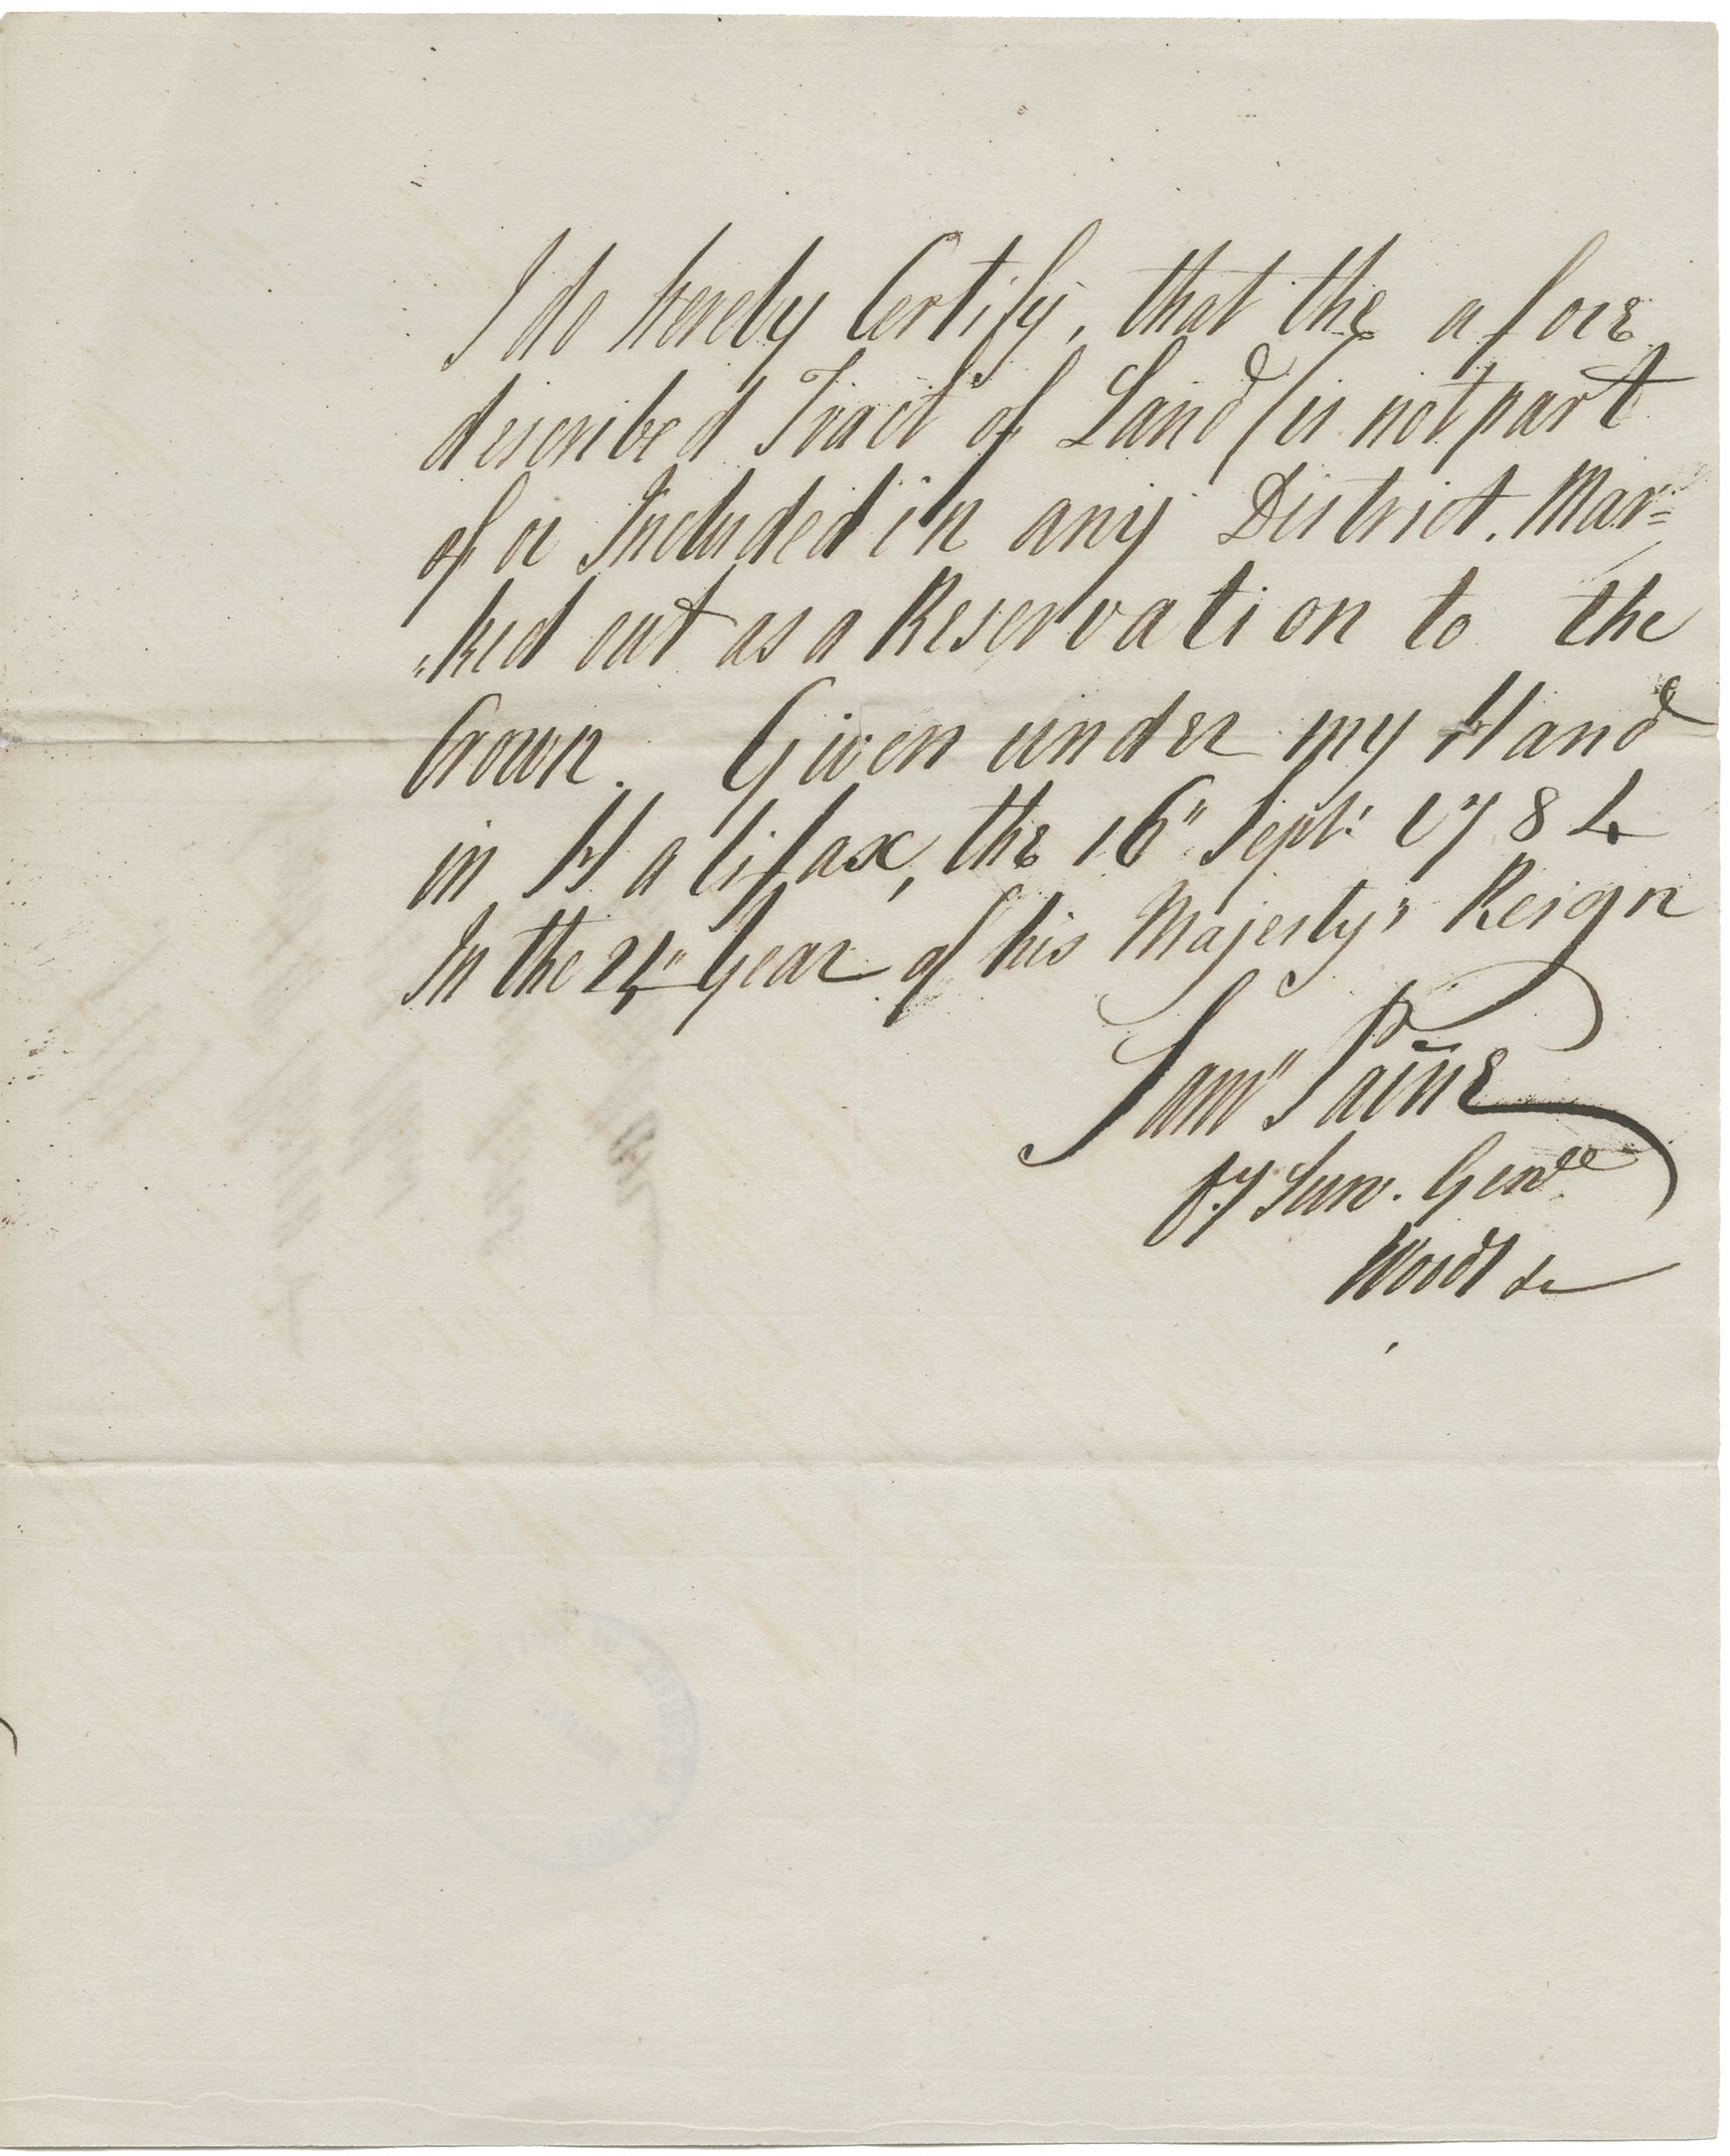 I do hereby Certify, that the afore
described Tract of Land (is not part
of or Included in any District. Mar=
"ked out as a Reservation to the
Crown. Given under my Hand
in Halifax, the 16" Sept: 1784
In the 24" Year of his Majesty's Reign
Sam" Paine
Surv. Gen
Woods